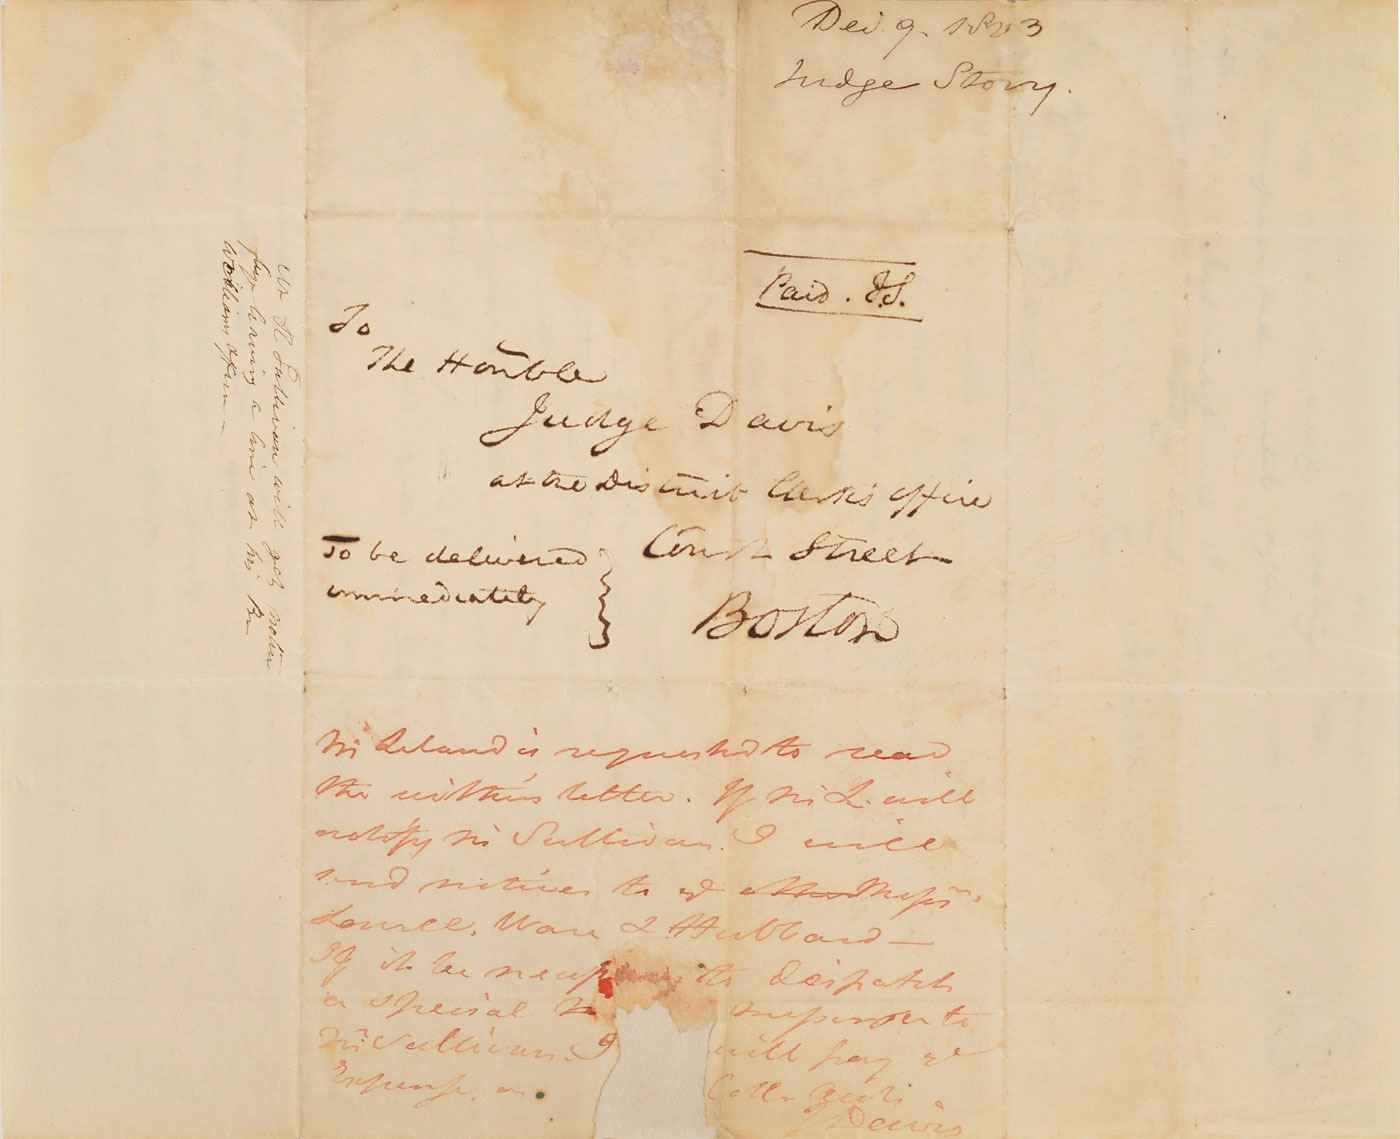 Dec 9. 1823
Judge Story.
Paid. J.S.
To
The Honble
Judge Davis
at the District Clerk's office
Court Street
Boston
To be delivered
immediately
Mr Sullivan will get notice
by leaving a line at his Br
William's office
Mr Leland is requested to read
the within letter. If Mr L. will
notify Mr Sullivan. I will
send notices to ye other Messrs
Lowell, Ware & Hubbard —
If it be necessary to dispatch
a special messenger to
Mr Sullivan. I will pay ye
Expense, as Coll.
J Davis